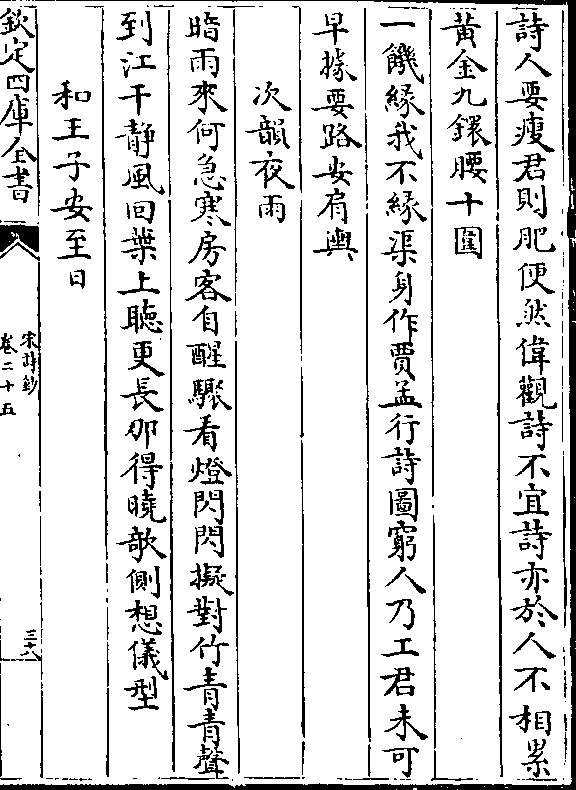 詩人要瘦君則肥便然偉觀詩不宜詩亦於人不相累
黃金九鐶腰十圍
一饑緣我不緣渠身作賈孟行詩圖窮人乃工君未可
早據要路安肩輿
次韻夜雨
暗雨來何急寒房客自醒驟看燈閃閃擬對竹青青聲
到江干静風回葉上聽更長那得曉欹側想儀型
和王子安至日
欽定四庫全書
宋詩鈔
卷二十五
三十八